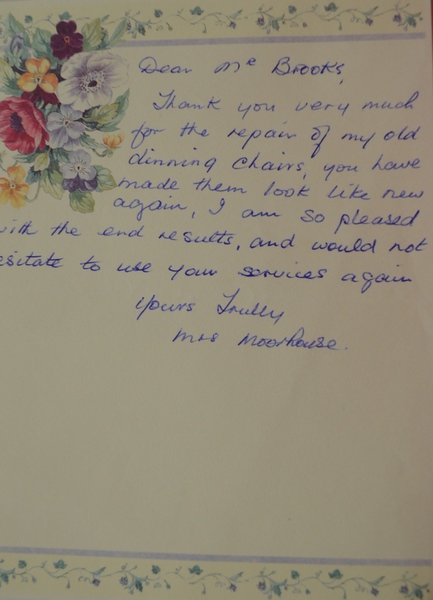 Dear Mr Brooks,
Thank you very much
for the repair of my old
dinning chairs, you have
made them look like new
again, I am so pleased
with the end results, and would not
esitate to use your services again
Yours Trully
Mrs Moorhouse.